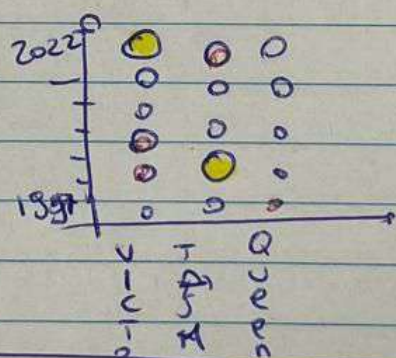 2022
1997
VICTO
TASM
Queen